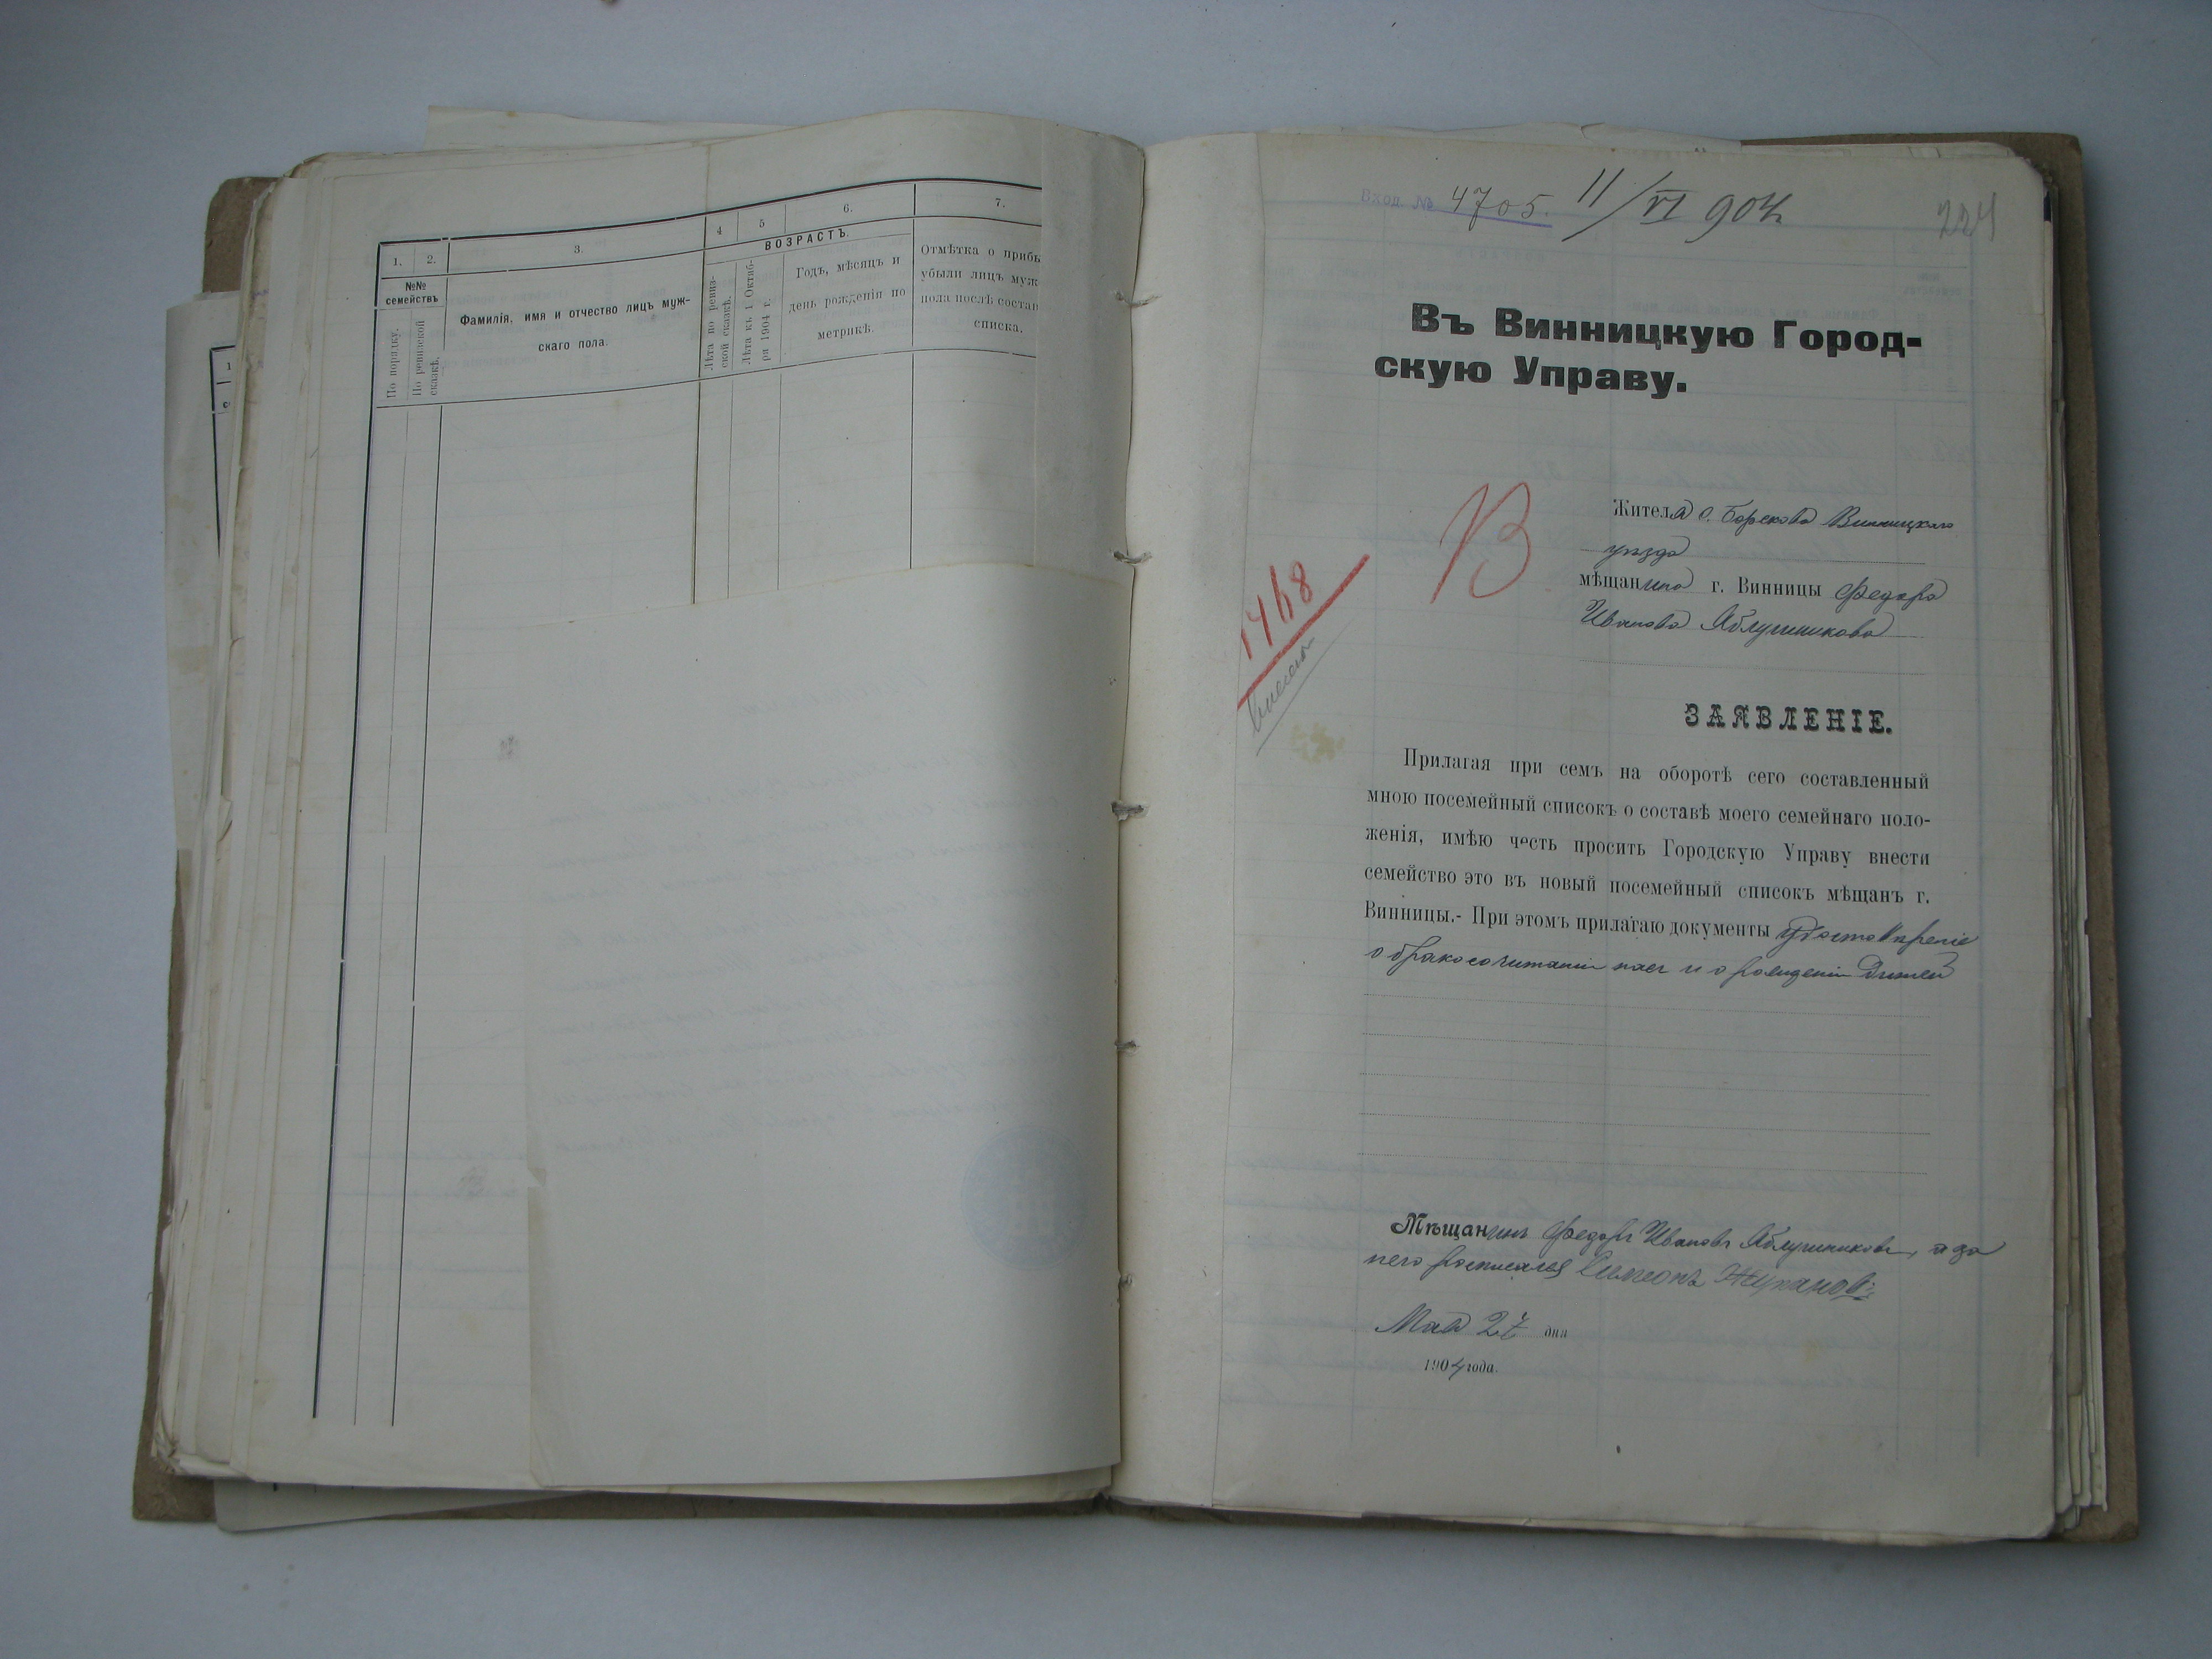 1. 2. 3. 4 5 6. 7.
ВОЗРАСТЪ.
№№
семействъ
По порядку.
По ревизской
сказкѣ.
Фамилія, имя и отчество лицъ муж-
скаго пола.
Лѣта по ревиз-
ской сказкѣ.
Лѣта къ 1 Октяб-
ря 1904 г.
Годъ, мѣсяцъ и
день рожденія по
метрикѣ.
Отмѣтка о прибы
убыли лицъ муж
пола послѣ состав
списка.
Вход. № 4705. 11/VI 904 г.
224
Въ Винницкую Город-
скую Управу.
В
1468
Жителя с. Борскова Винницкаго
уѣзда
мѣщанина г. Винницы Федора
Иванова Яблучникова
ЗАЯВЛЕНІЕ.
Прилагая при семъ на оборотѣ сего составленный
мною посемейный списокъ о составѣ моего семейнаго поло-
женія, имѣю честь просить Городскую Управу внести
семейство это въ новый посемейный списокъ мѣщанъ г.
Винницы.- При этомъ прилагаю документы удостовѣреніе
о бракосочитаніи и о рождении дитей
Мѣщанинъ Федоръ Ивановъ Яблучниковъ, а за
него росписался Симеонъ Жупановъ
Мая 27 дня
1904 года.